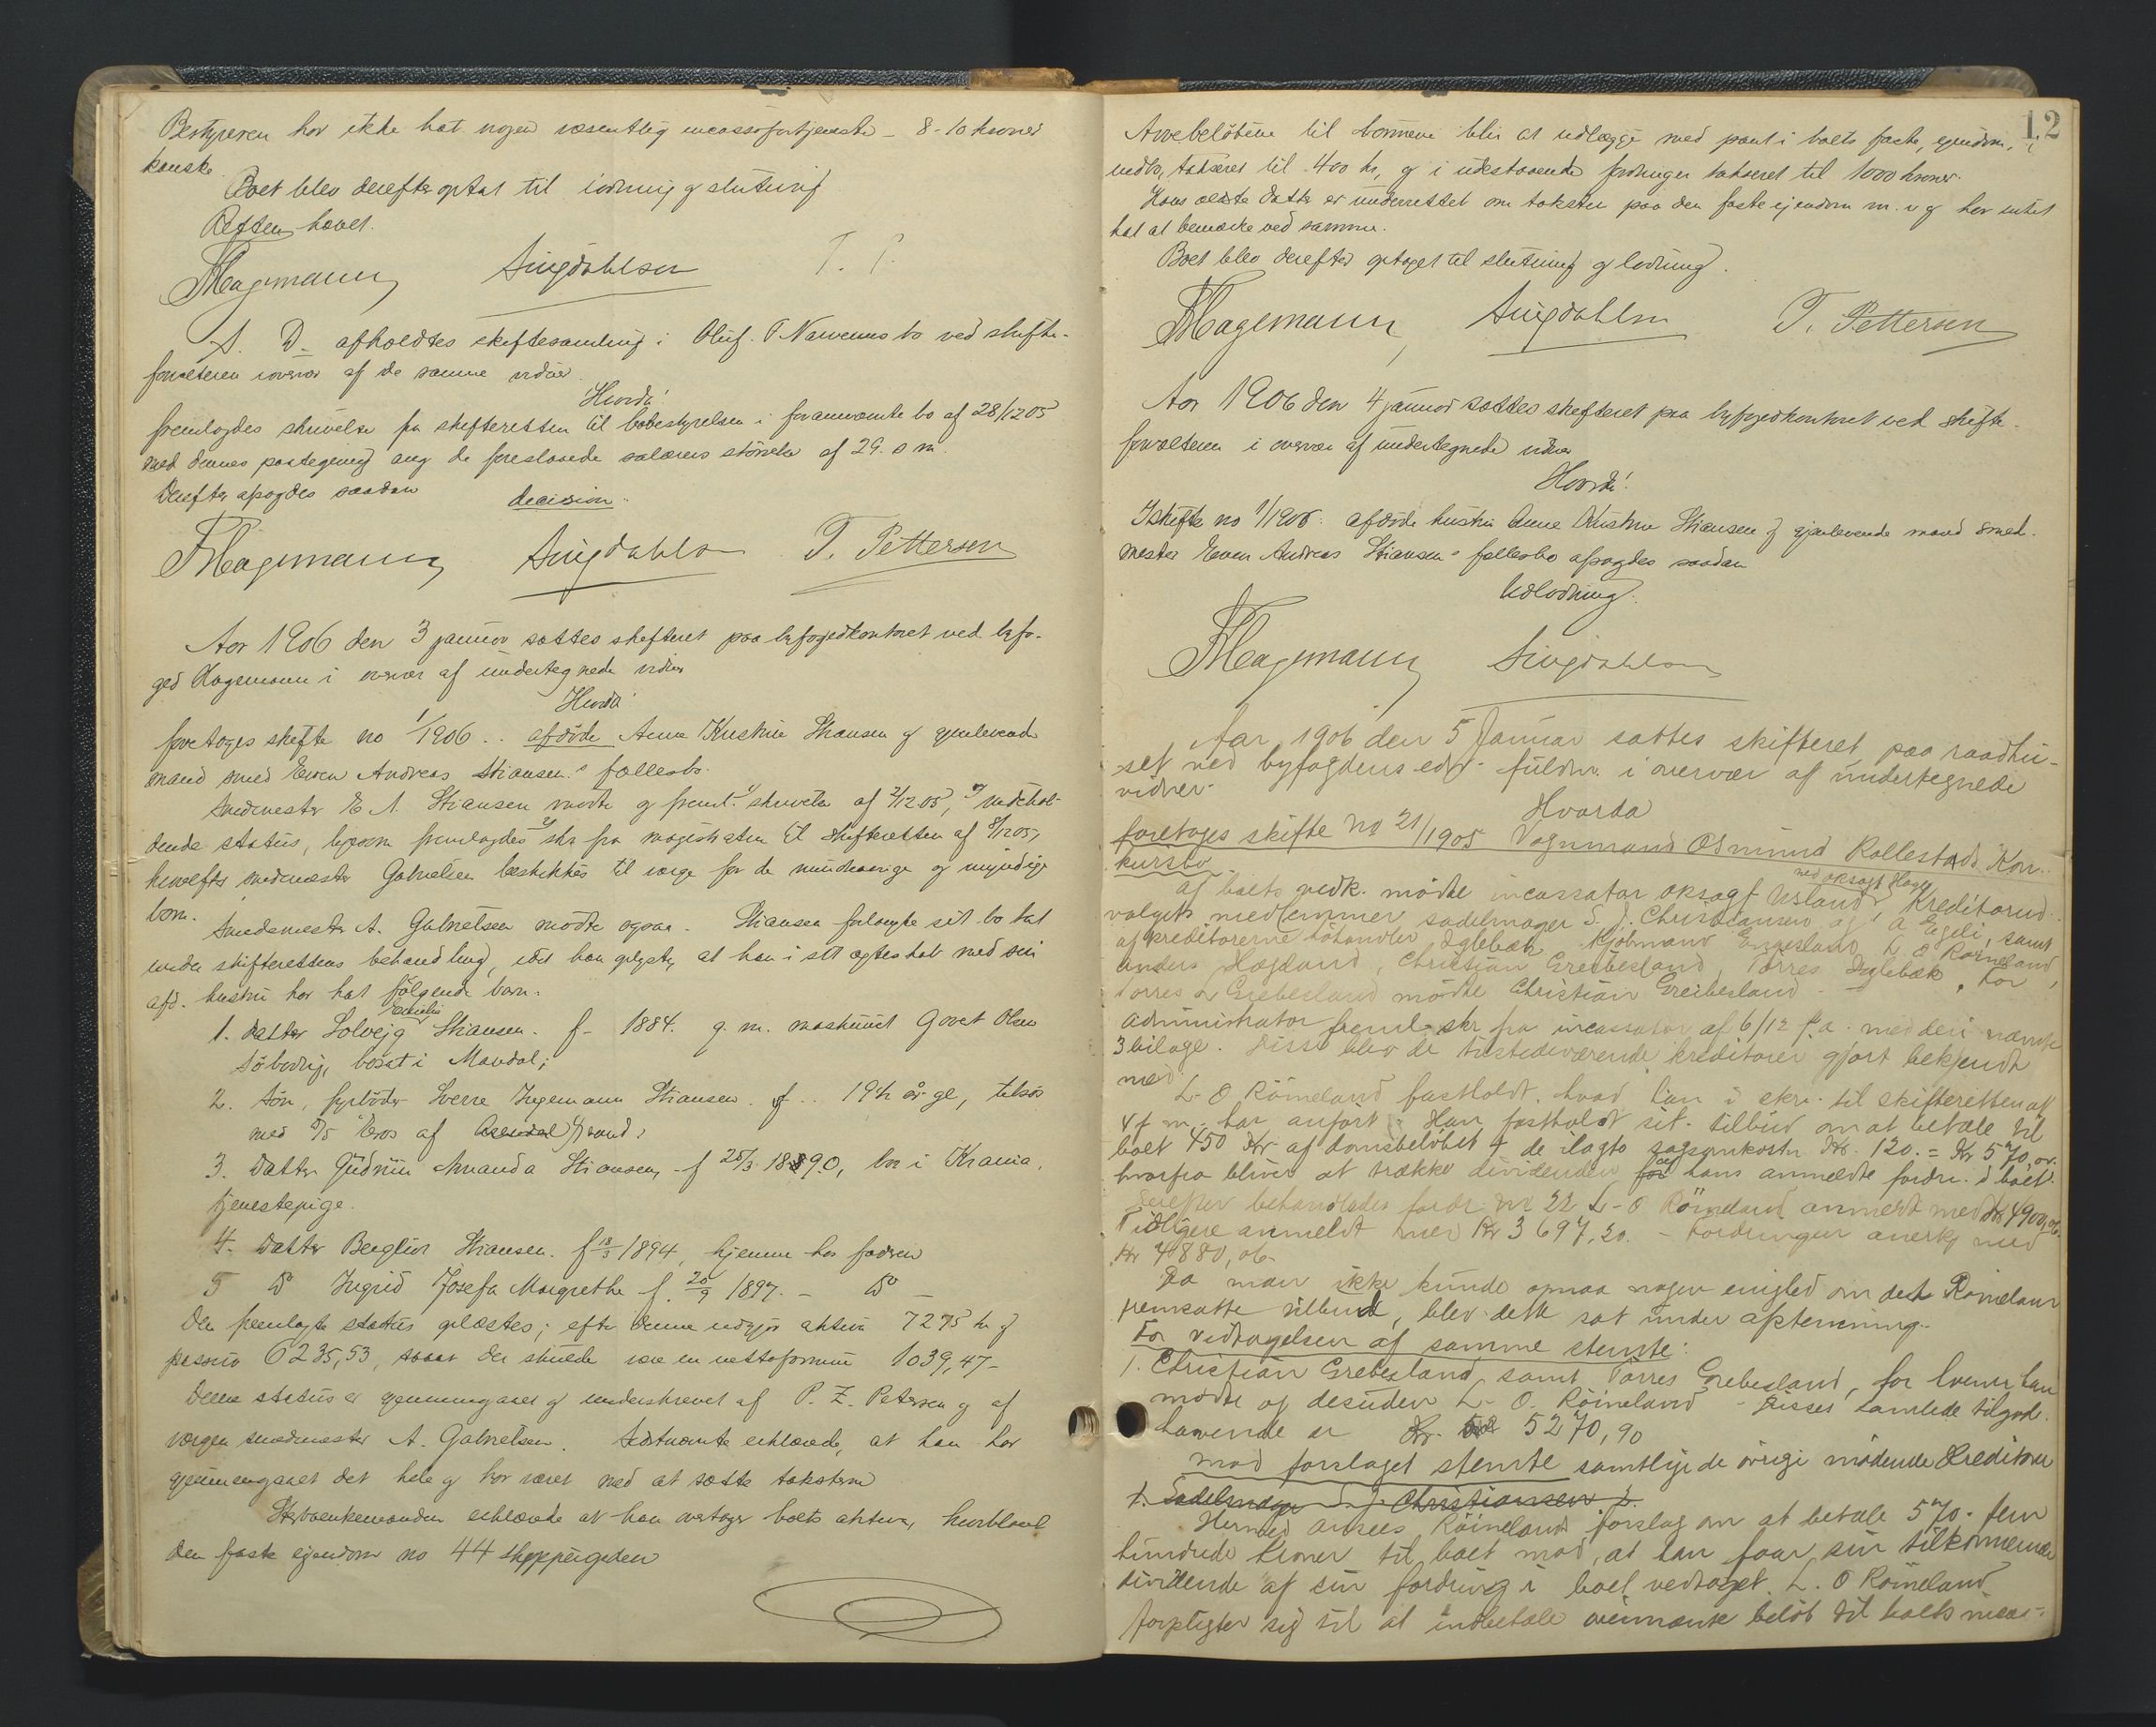 Bestyreren har ikke hat nogen væsentlig incassofortjeneste - 8-10 kroner
kanske.
Boet blev derefter optat til lodning og slutning
Retten hævet.
FHagemann Singdahlsen T. P.
S. D. afholdtes skiftesamling i Oluf T. bo ved skifte-
forvalteren i overvær af de samme vidner
Hvorda!
fremlagdes skrivelse fra skifteretten til bobestyrelsen i forannævnte bo af 28/12 05
med dennes paategning ang de foreslaaede salærers størrelse af 29. s m.
Derefter afsagdes saadan decision..
FHagemann Singdahlsen T. Pettersen
Aar 1906 den 3 januar sattes skifteret paa byfogedkontoret ved byfo-
ged Hagemann i overvær af undertegnede vidner
Hvorda!
foretoges skifte no 1/1906.. afdöde Anne Kristine Stiansen og gjenlevende
mand smed Even Andreas Stiansen's fællesbo.
Smedmester E A. Stiansen mødte og freml. 1) skrivelse af 2/12 05, indehol-
dende status, ligesom fremlagdes 2) skr fra magistraten til skifteretten af 8/12 05,
hvorefter smedmester Gabrielsen beskikkes til værge for de mindreaarige og umyndige
børn.
Smedemester A. Gabrielsen mødte ogsaa. Stiansen forlangte sit bo tat
under skifterettens behandling, idet han oplyste, at han i sit ægteskab med sin
afd. hustru har hat følgende børn.
1. datter Solveig Stiansen. f. 1884. g. m. maskinist Govert Olsen
Söbodrig, bosat i Mandal;
2. sön, fyrbøder Sverre Ingemann Stiansen. f.. 19½ år gl, tilsös
med D/S Eros af Arendal Strand;
3. datter Gudrun Amanda Stiansen, f 25/3 1890, bor i Krania,
tjenestepige.
4. Datter Bergliot Stiansen. f 18/3 1894, hjemme hos faderen
5 Do Ingrid Josefa Margrethe f. 20/9 1897. - Do -
Den fremlagte status oplæstes; efter denne udgjør aktiva 7275 kr og
passiva 6235,53, saaat der skulde være en nettoformue 1039,47-
Denne status er gjennemgaaet og underskrevet af P. Z. Petersen og af
værgen smedmester A. Gabrielsen. Sidstnævnte erklærede, at han har
gjennemgaaet det hele og har været med at sætte taksterne
Sterboenkemanden erklærede at han overtager boets aktiva, hvoriblandt
den faste eiendom no 44 Skippergaden
12
Arvebeløbene til børnene blir at udlægge med pant i boets faste eiendom,
indbo, takseret til 400 kr, og i udestaaende fordringer takseret til 1000 kroner.
Hans ældste datter er underrettet om taksten paa den faste ejendom m. v og har intet
hat at bemærke ved samme.
Boet blev derefter optaget til slutning og lodning.
FHagemann, Singdahlsen T. Pettersen
Aar 1906 den 4 januar sattes skifteret paa byfogedkontoret ved skifte-
forvalteren i overvær af undertegnede vidner
Hvorda!
I skifte no 1/1906: afdöde hustru Anne Kristine Stiansen og gjenlevende mand smed-
mester Even Andreas Stiansen's fællesbo afsagdes saadan
Udlodning.
FHagemann Singdahlsen
Aar 1906 den 5 Januar sattes skifteret paa raadhu-
set ved byfogdens edsv. fuldm. i overvær af undertegnede
vidner-
Hvorda
foretoges skifte no 21/1905 Vognmand Osmund Rollestads Kon-
kursbo.
af boets vedk. mødte incassator oksagf Usland, Kreditorud-
valgets medlemmer sadelmager S. J. Christiansen og A Egeli, samt
af kreditorerne Iglebæk Kjøbmand L O Röineland
Anders Høgland, Christian Greibesland, Torres Iglebæk, For
Torres Greibesland mødte Christian Greibesland -
Administrator freml. skr fra incassator af 6/12 f.a. med deri nævnte
3 bilage. Disse blev de tilstedeværende kreditorer gjort bekjendt
med.
L. O Röineland fastholdt hvad han i skr. til skifteretten af
4 f m. har anført. Han fastholdt sit tilbud om at betale til
boet 450 kr. af domsbeløbet + de ilagte sagsomkostn Kr. 120. = Kr 570, 00.
hvorfra bliver at trække dividenden af hans anmeldte fordr. i boet.
Derefter behandledes fordr. nr 22 L. O Röineland anmeldt med Kr 4900,06.
Tidligere anmeldt med Kr 3697,20. - Fordringen anerkj med
Kr 4880,06-
Da man ikke kunde opnaa nogen enighed om det Röineland
fremsatte tilbud, blev dette sat under afstemning.
For vedtagelsen af samme stemte:
1. Christian Greibesland samt Torres Greibesland, for hvem han
mødte og desuden L. O. Röineland - Disses samlede tilgode-
havende er Kr. 5270,90
mod forslaget stemte samtlige de øvrige mødende Kreditorer
1. Sadelmager S. J. Christiansen 2.
Hermed ansees Röinelands forslag om at betale 570. fem
hundrede Kroner til boet mod, at han faar sin tilkommende
dividende af sin fordring i boet vedtaget. L. O Röineland
forpligter sig til at indbetale ovennævnte beløb til boets incas-